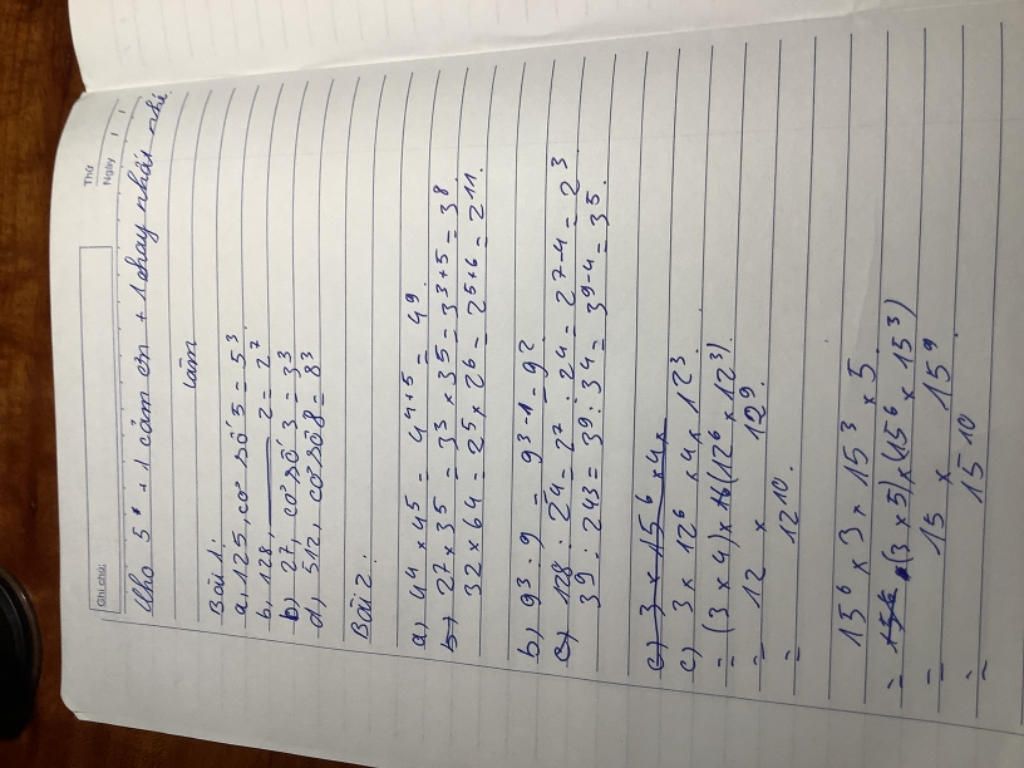 Thứ
Ngày
Ghi chú:
Cho 5* + 1 cảm ơn + 1 hay nhất nhé.
Làm
Bài 1:
a, 125, cơ số 5 = 5³
b, 128, ——— 2 = 2⁷
b) 27, cơ số 3 = 3³
d) 512, cơ số 8 = 8³
Bài 2:
a) 4⁴ × 4⁵ = 4⁴⁺⁵ = 4⁹
b) 27 × 3⁵ = 3³ × 3⁵ = 3³⁺⁵ = 3⁸
32 × 64 = 2⁵ × 2⁶ = 2⁵⁺⁶ = 2¹¹.
b) 9³ : 9 = 9³⁻¹ = 9²
c) 128 : 2⁴ = 2⁷ : 2⁴ = 2⁷⁻⁴ = 2³
3⁹ : 243 = 3⁹ : 3⁴ = 3⁹⁻⁴ = 3⁵.
c) 3 × 15⁶ × 4 ×
c) 3 × 12⁶ × 4 × 12³
= (3 × 4) × (12⁶ × 12³).
= 12 × 12⁹.
= 12¹⁰.
15⁶ × 3 × 15³ × 5
= (3 × 5) × (15⁶ × 15³)
= 15 × 15⁹.
= 15¹⁰